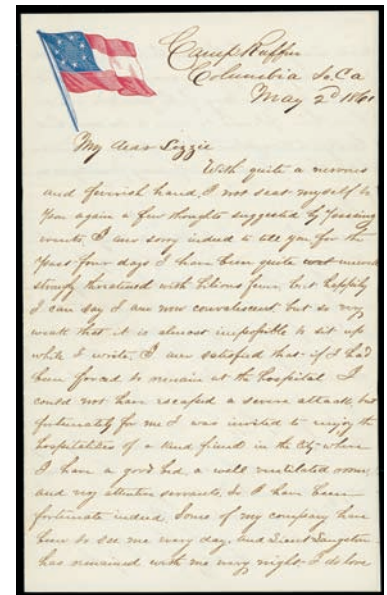 Camp Ruffin
Columbia So. Ca
May 2d 1861
My dear Lizzie
With quite a nervous
and feverish hand, I not seat myself to
you again a few thoughts suggested by passing
events. I am sorry indeed to tell you for the
past four days I have been quite
strongly threatened with bilious fever, but happily
I can say I am now convalescent but so very
weak that it is almost impossible to sit up
while I write. I am satisfied that if I had
been forced to remain at the hospital I
could not have escaped a severe attack, but
fortunately for me I was invited to enjoy the
hospitalities of a kind friend in the City where
I have a good bed, a well ventilated room,
and very attentive servants. So I have been
fortunate indeed. Some of my company have
been to see me every day, and Lieut Langston
has remained with me every night. I do love